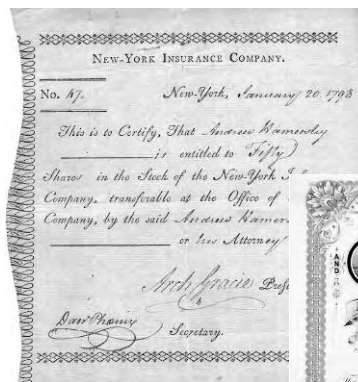 NEW-YORK INSURANCE COMPANY.
No. 47. New-York, January 20. 1798
This is to Certify, That Andrew Hamersley
is entitled to Fifty
Shares in the Stock of the New-York
Company, transferable at the Office of
Company, by the said Andrew Hamers
or his Attorney
Arch Gracie Pres
Secretary.
AND